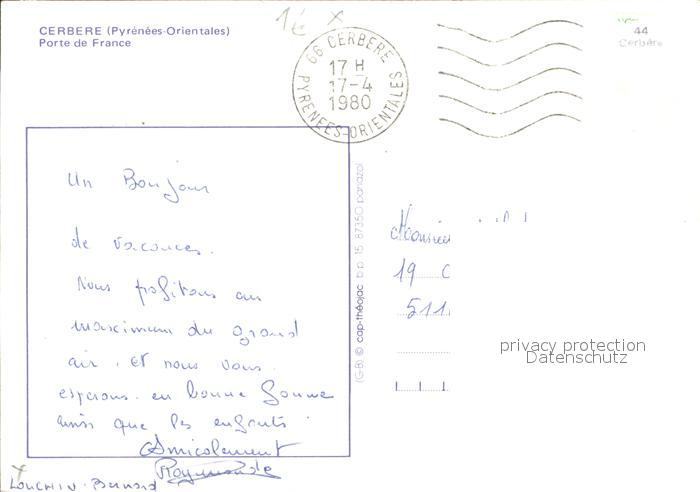 CERBERE (Pyrénées-Orientales)
Porte de France
1€ x
66 CERBERE
17 H
17-4
1980
PYRENEES-ORIENTALES
44
Cerbère
Un Bonjour
de vacances.
Nous profitons au
maximum du grand
air, et nous vous
espérons en bonne forme
ainsi que les enfants
Amicalement
Raymonde
Bernard
(G-B) © cap-théojac b.p. 15 87350 panazol
Monsieu
19
511
privacy protection
Datenschutz